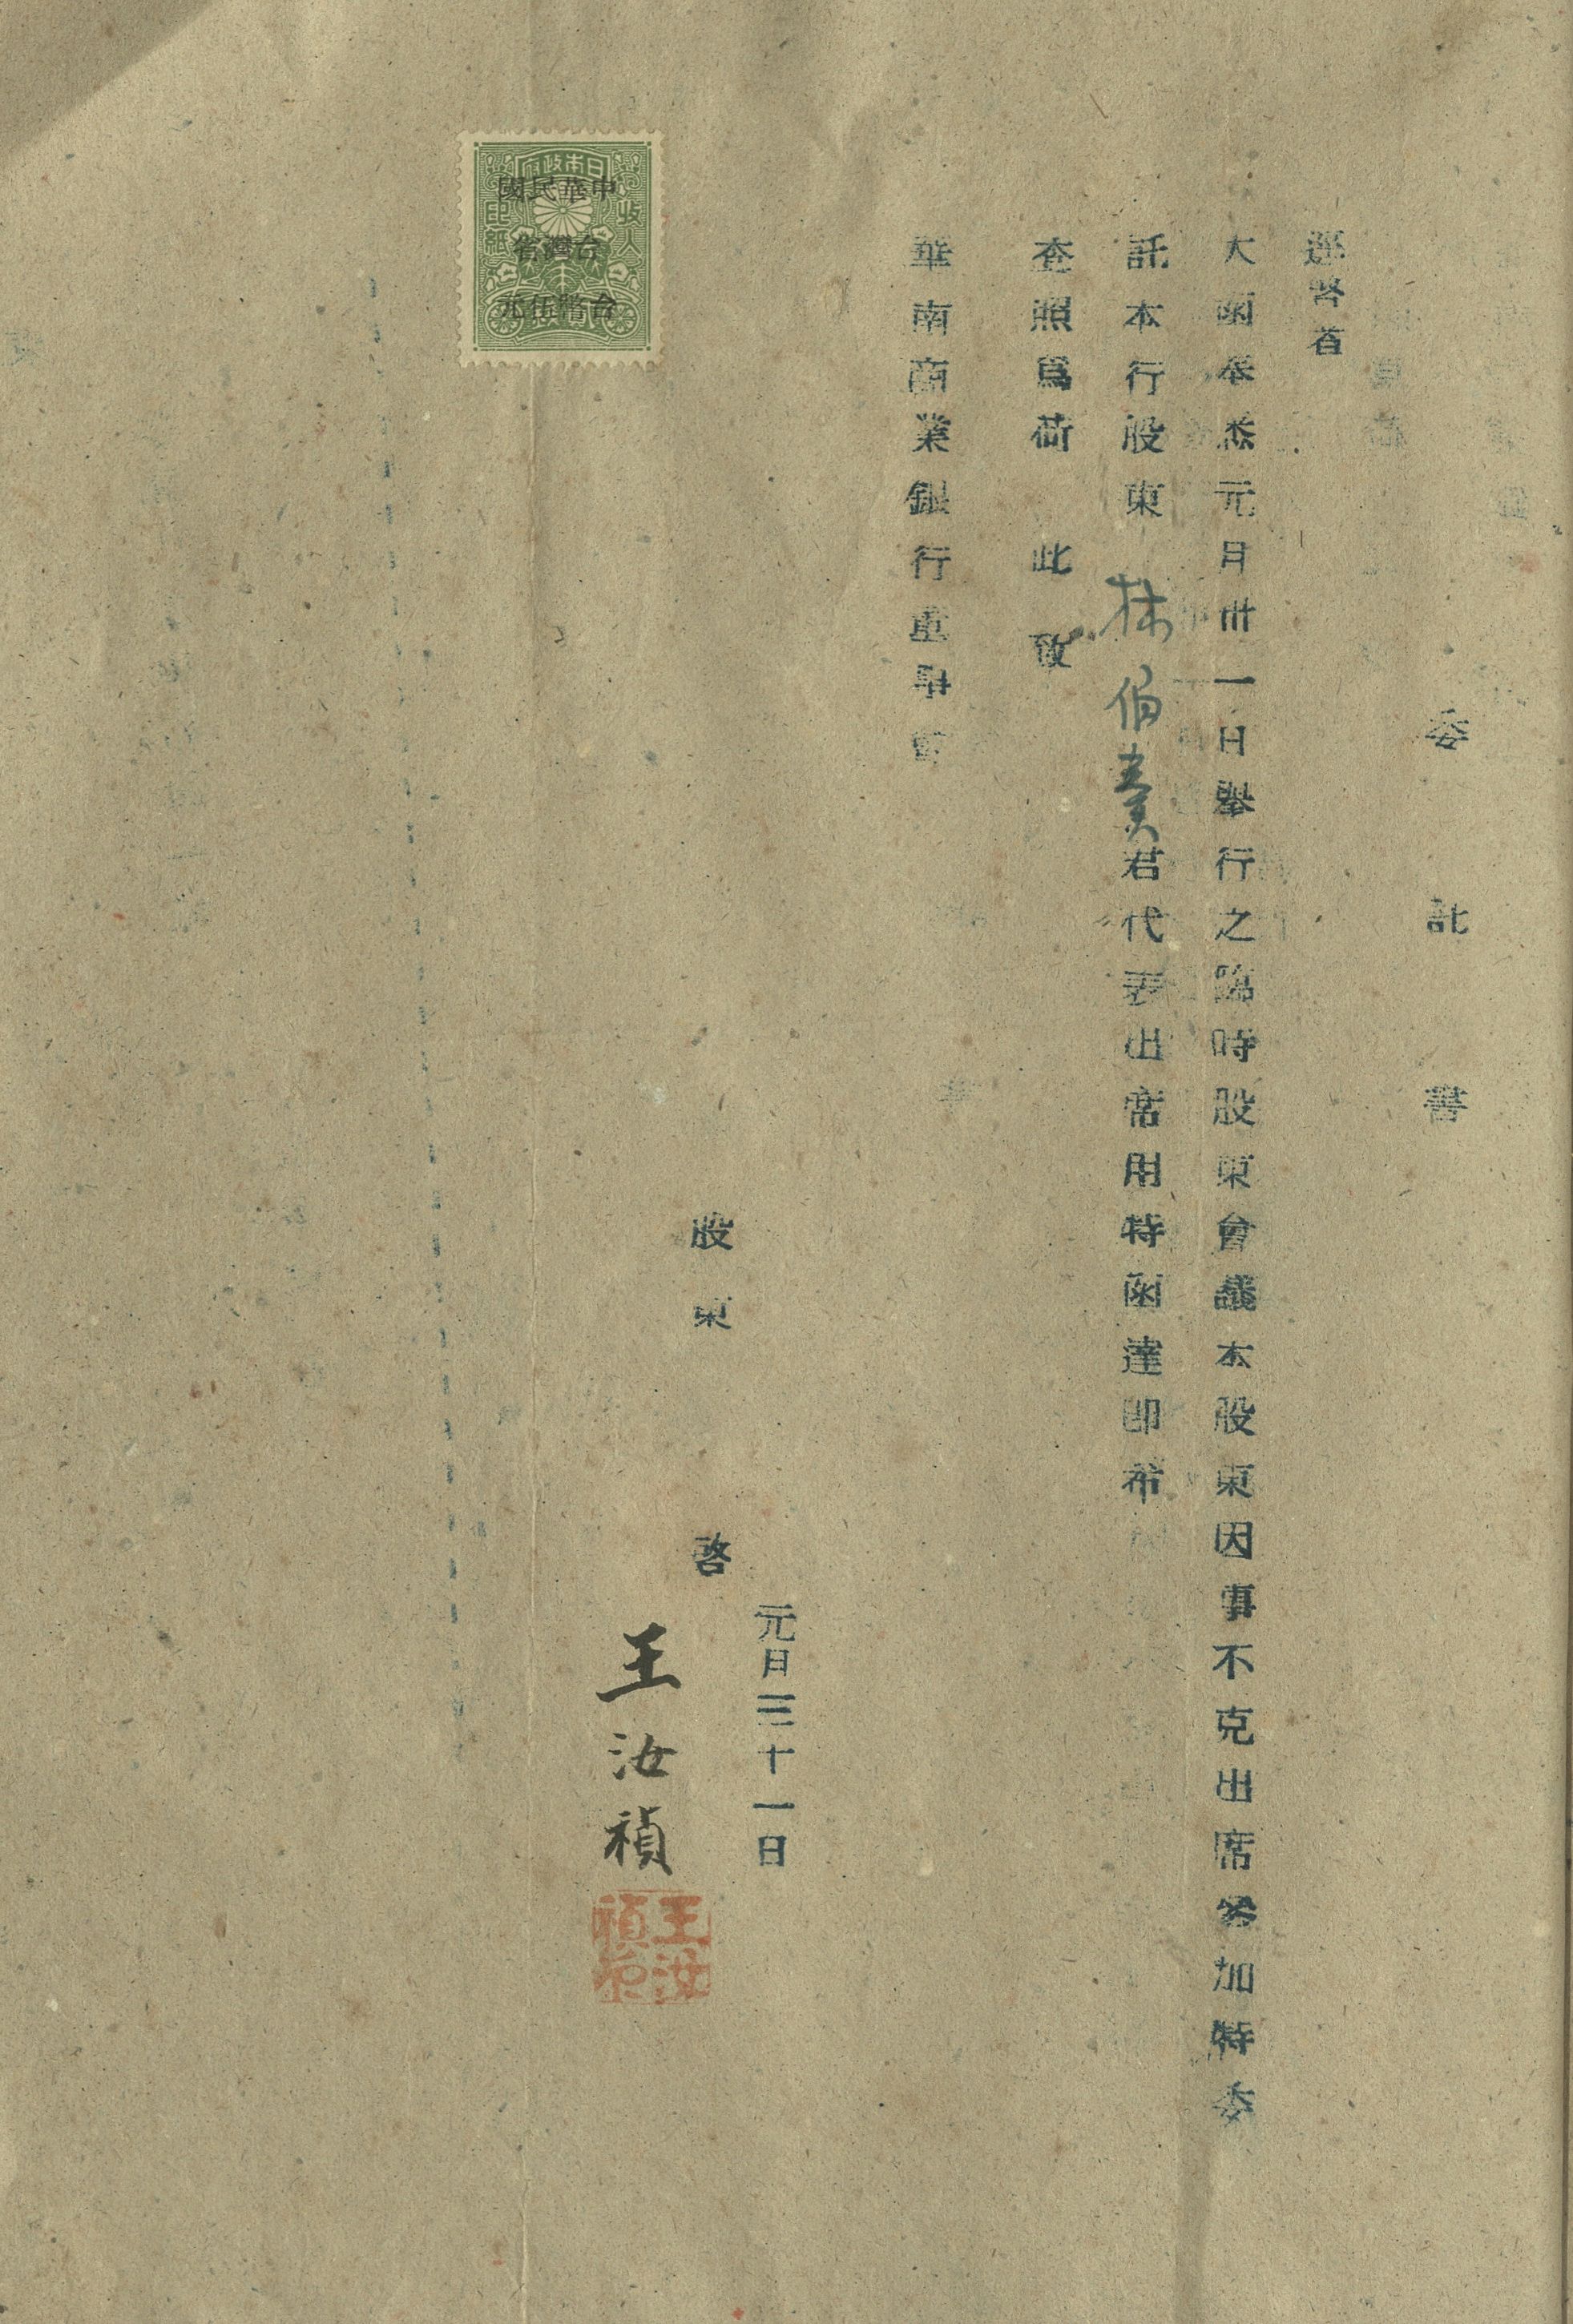 委託書
逕啓者
大函奉悉元月卅一日舉行之臨時股東會議本股東因事不克出席參加特委
託本行股東林伯奏君代表出席用特函達即希
查照爲荷 此致
華南商業銀行董事會
元月三十一日
股東 啓
王汝禎
王汝禎印
日本政府
收入印紙
中華民國
台灣省
台幣伍元